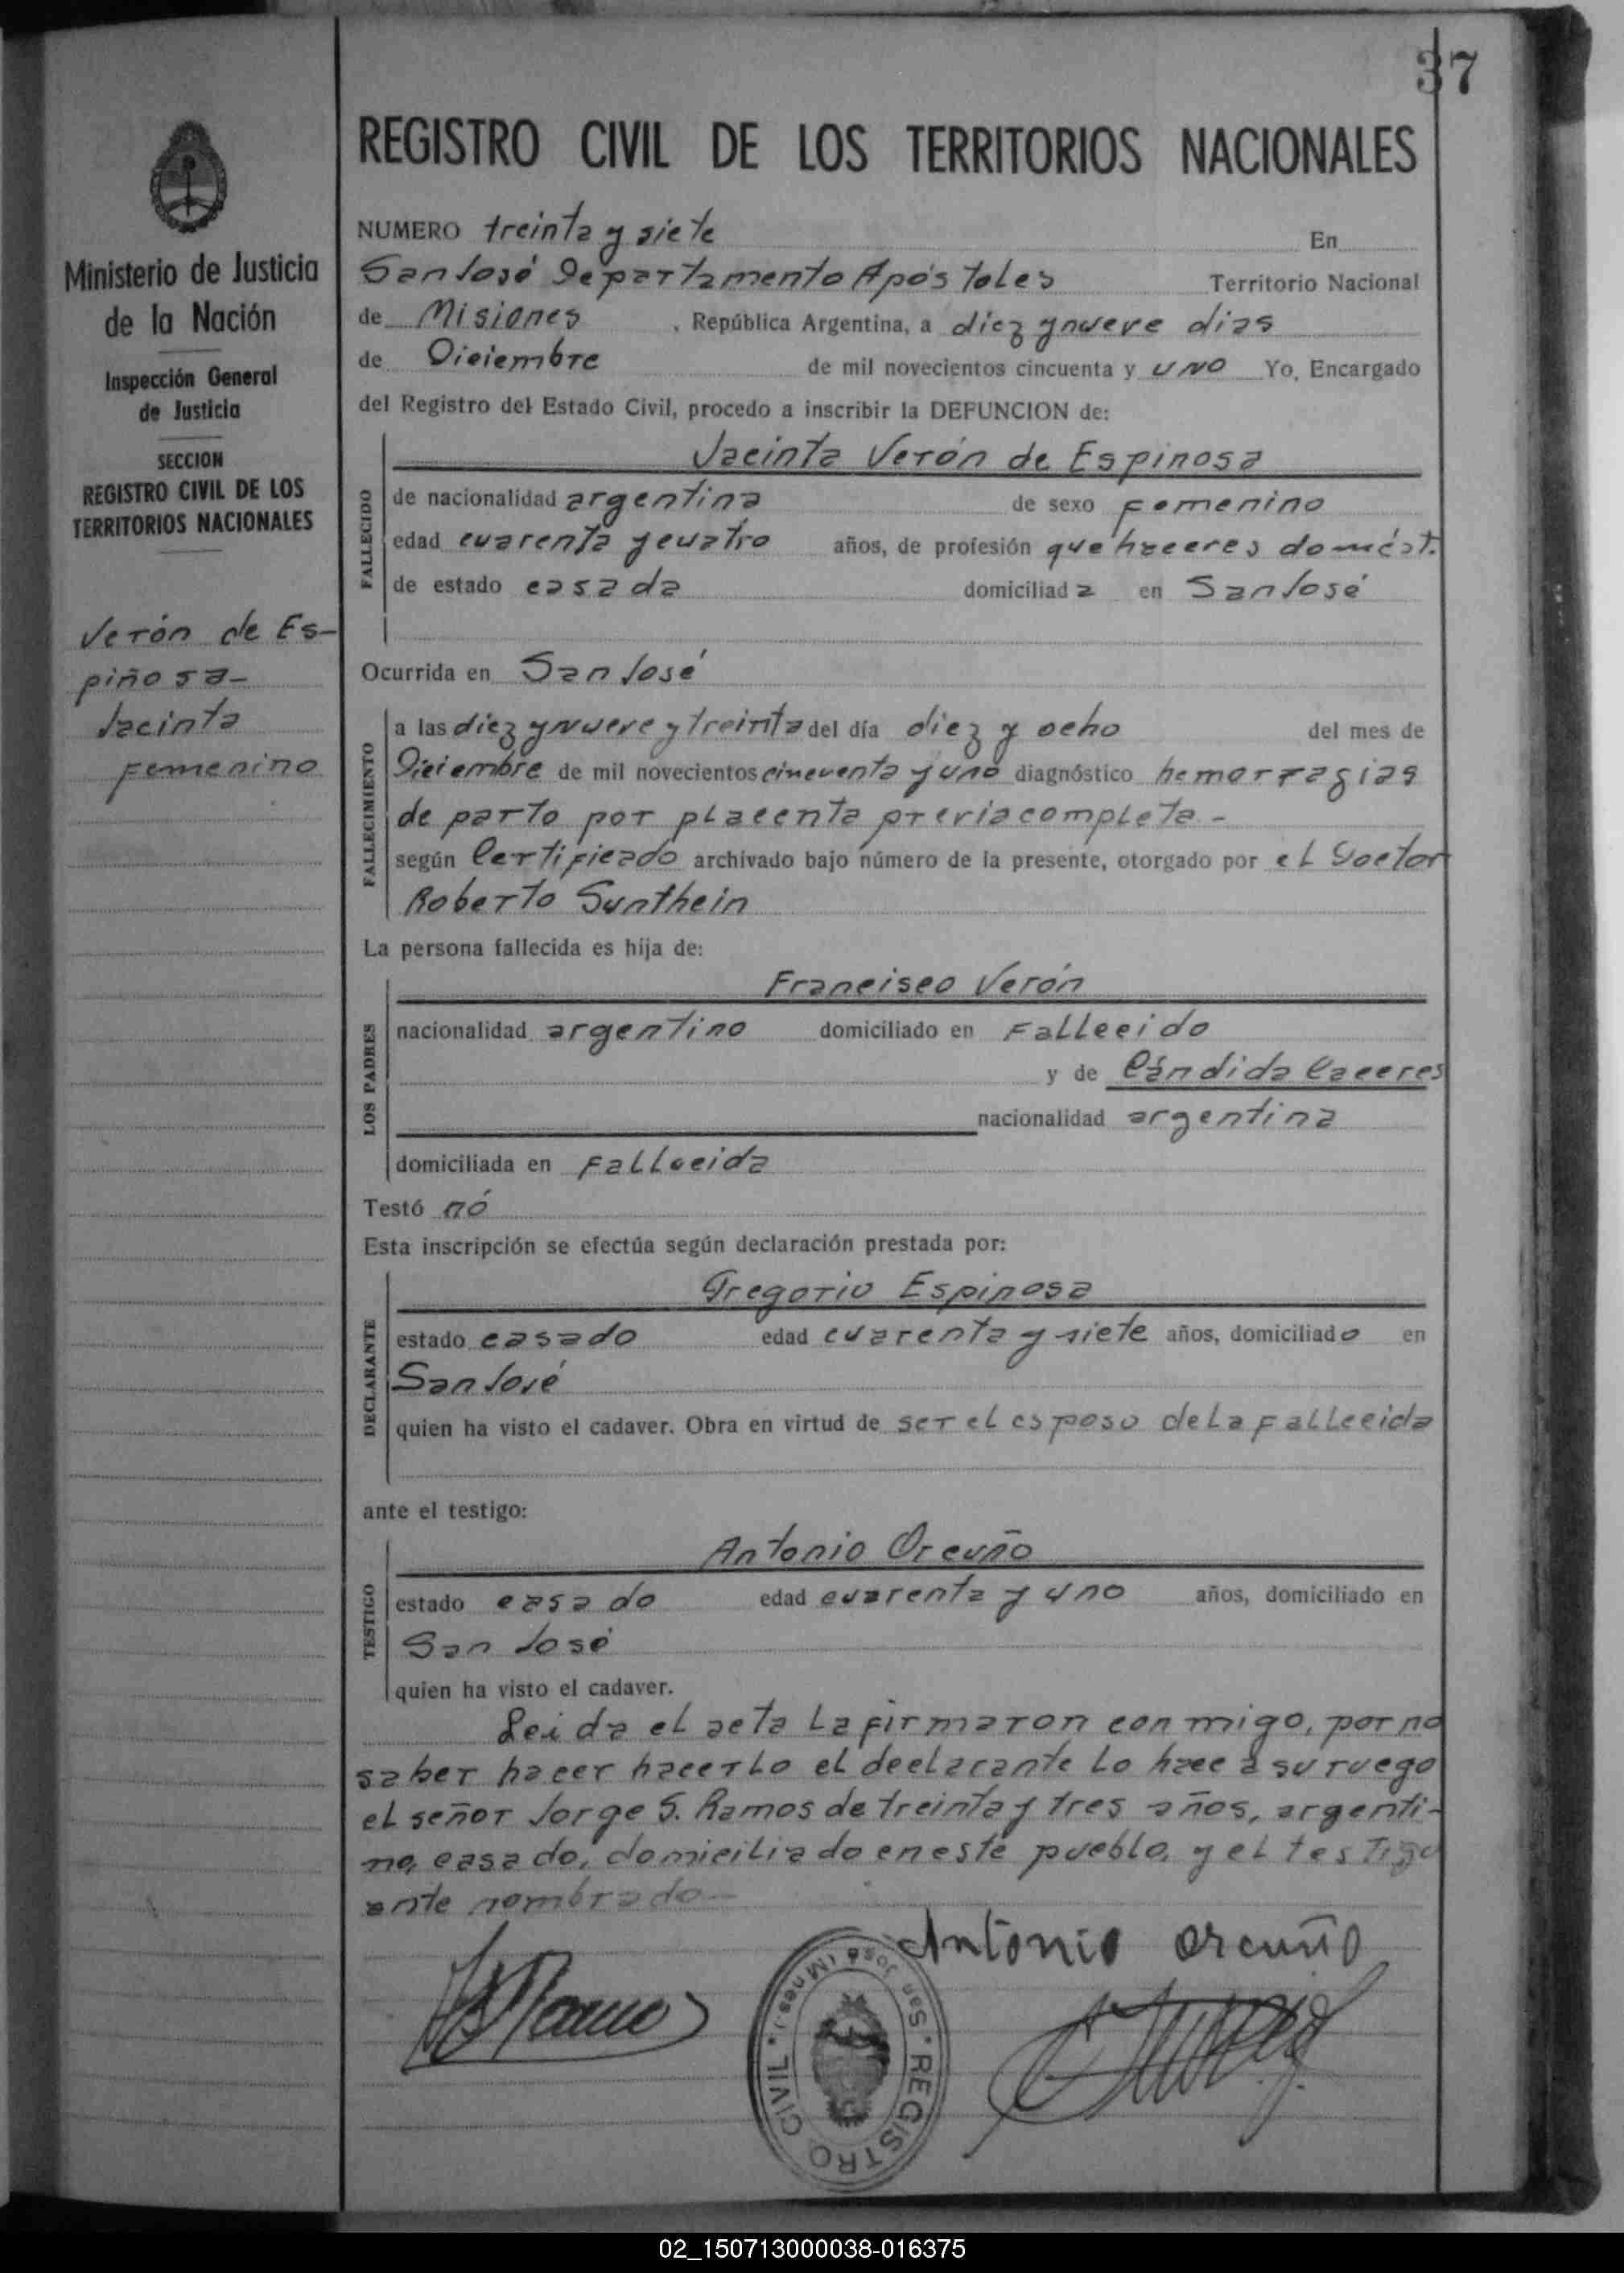 37
REGISTRO CIVIL DE LOS TERRITORIOS NACIONALES
Ministerio de Justicia
de la Nación
Inspección General
de Justicia
SECCION
REGISTRO CIVIL DE LOS
TERRITORIOS NACIONALES
Verón de Es-
piñosa-
Jacinta
Femenino
NUMERO treinta y siete En
San José Departamento Apóstoles Territorio Nacional
de Misiones , República Argentina, a diez y nueve dias
de Diciembre de mil novecientos cincuenta y uno Yo, Encargado
del Registro del Estado Civil, procedo a inscribir la DEFUNCION de:
Jacinta Verón de Espinosa
FALLECIDO
de nacionalidad argentina de sexo femenino
edad cuarenta y cuatro años, de profesión quehaceres domést.
de estado casada domiciliada en San José
Ocurrida en San José
FALLECIMIENTO
a las diez y nueve y treinta del día diez y ocho del mes de
Diciembre de mil novecientos cincuenta y uno diagnóstico hemorragias
de parto por placenta previa completa -
según Certificado archivado bajo número de la presente, otorgado por el Doctor
Roberto Sunthein
La persona fallecida es hija de:
Francisco Verón
LOS PADRES
nacionalidad argentino domiciliado en Fallecido
y de Cándida Caceres
nacionalidad argentina
domiciliada en Fallecida
Testó nó
Esta inscripción se efectúa según declaración prestada por:
Gregorio Espinosa
DECLARANTE
estado casado edad cuarenta y siete años, domiciliado en
San José
quien ha visto el cadaver. Obra en virtud de ser el esposo de la fallecida
ante el testigo:
Antonio Orcuño
TESTIGO
estado casado edad cuarenta y uno años, domiciliado en
San José
quien ha visto el cadaver.
Leida el acta la firmaron conmigo, por no
saber hacer hacerlo el declarante lo hace a su ruego
el señor Jorge S. Ramos de treinta y tres años, argenti-
no, casado, domiciliado en este pueblo, y el testigo
ante nombrado -
Antonio Orcuño
REGISTRO CIVIL * San José (Mnes.) *
02_150713000038-016375